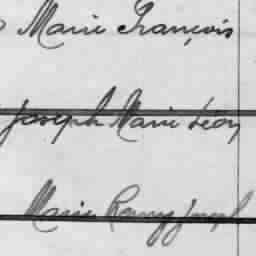 Marie François
Joseph Marie Léon
Marie Remy Joseph